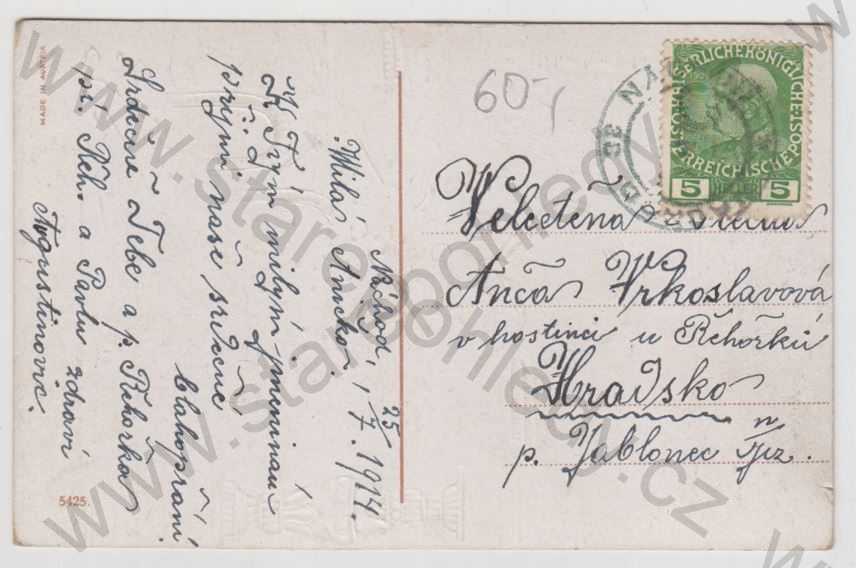 MADE IN AUSTRIA
Náchod, 25/7. 1914.
Milá Aničko,
K Tvým milým jmeninám
přijmi naše srdečné
blahopřání.
Srdečně Tebe a p. Řehořka
pí. Řeh. a Pavlu zdraví
Augustinovic.
5425.
60-,
KAISERLICHEKÖNIGLICHE
ÖSTERREICHISCHEPOST
5 HELLER 5
NÁCHOD
Velectěná slečna
Anča Vrkoslavová
v hostinci u Řehořků
Hradsko
p. Jablonec n/Jiz.
www.starepohledy.cz